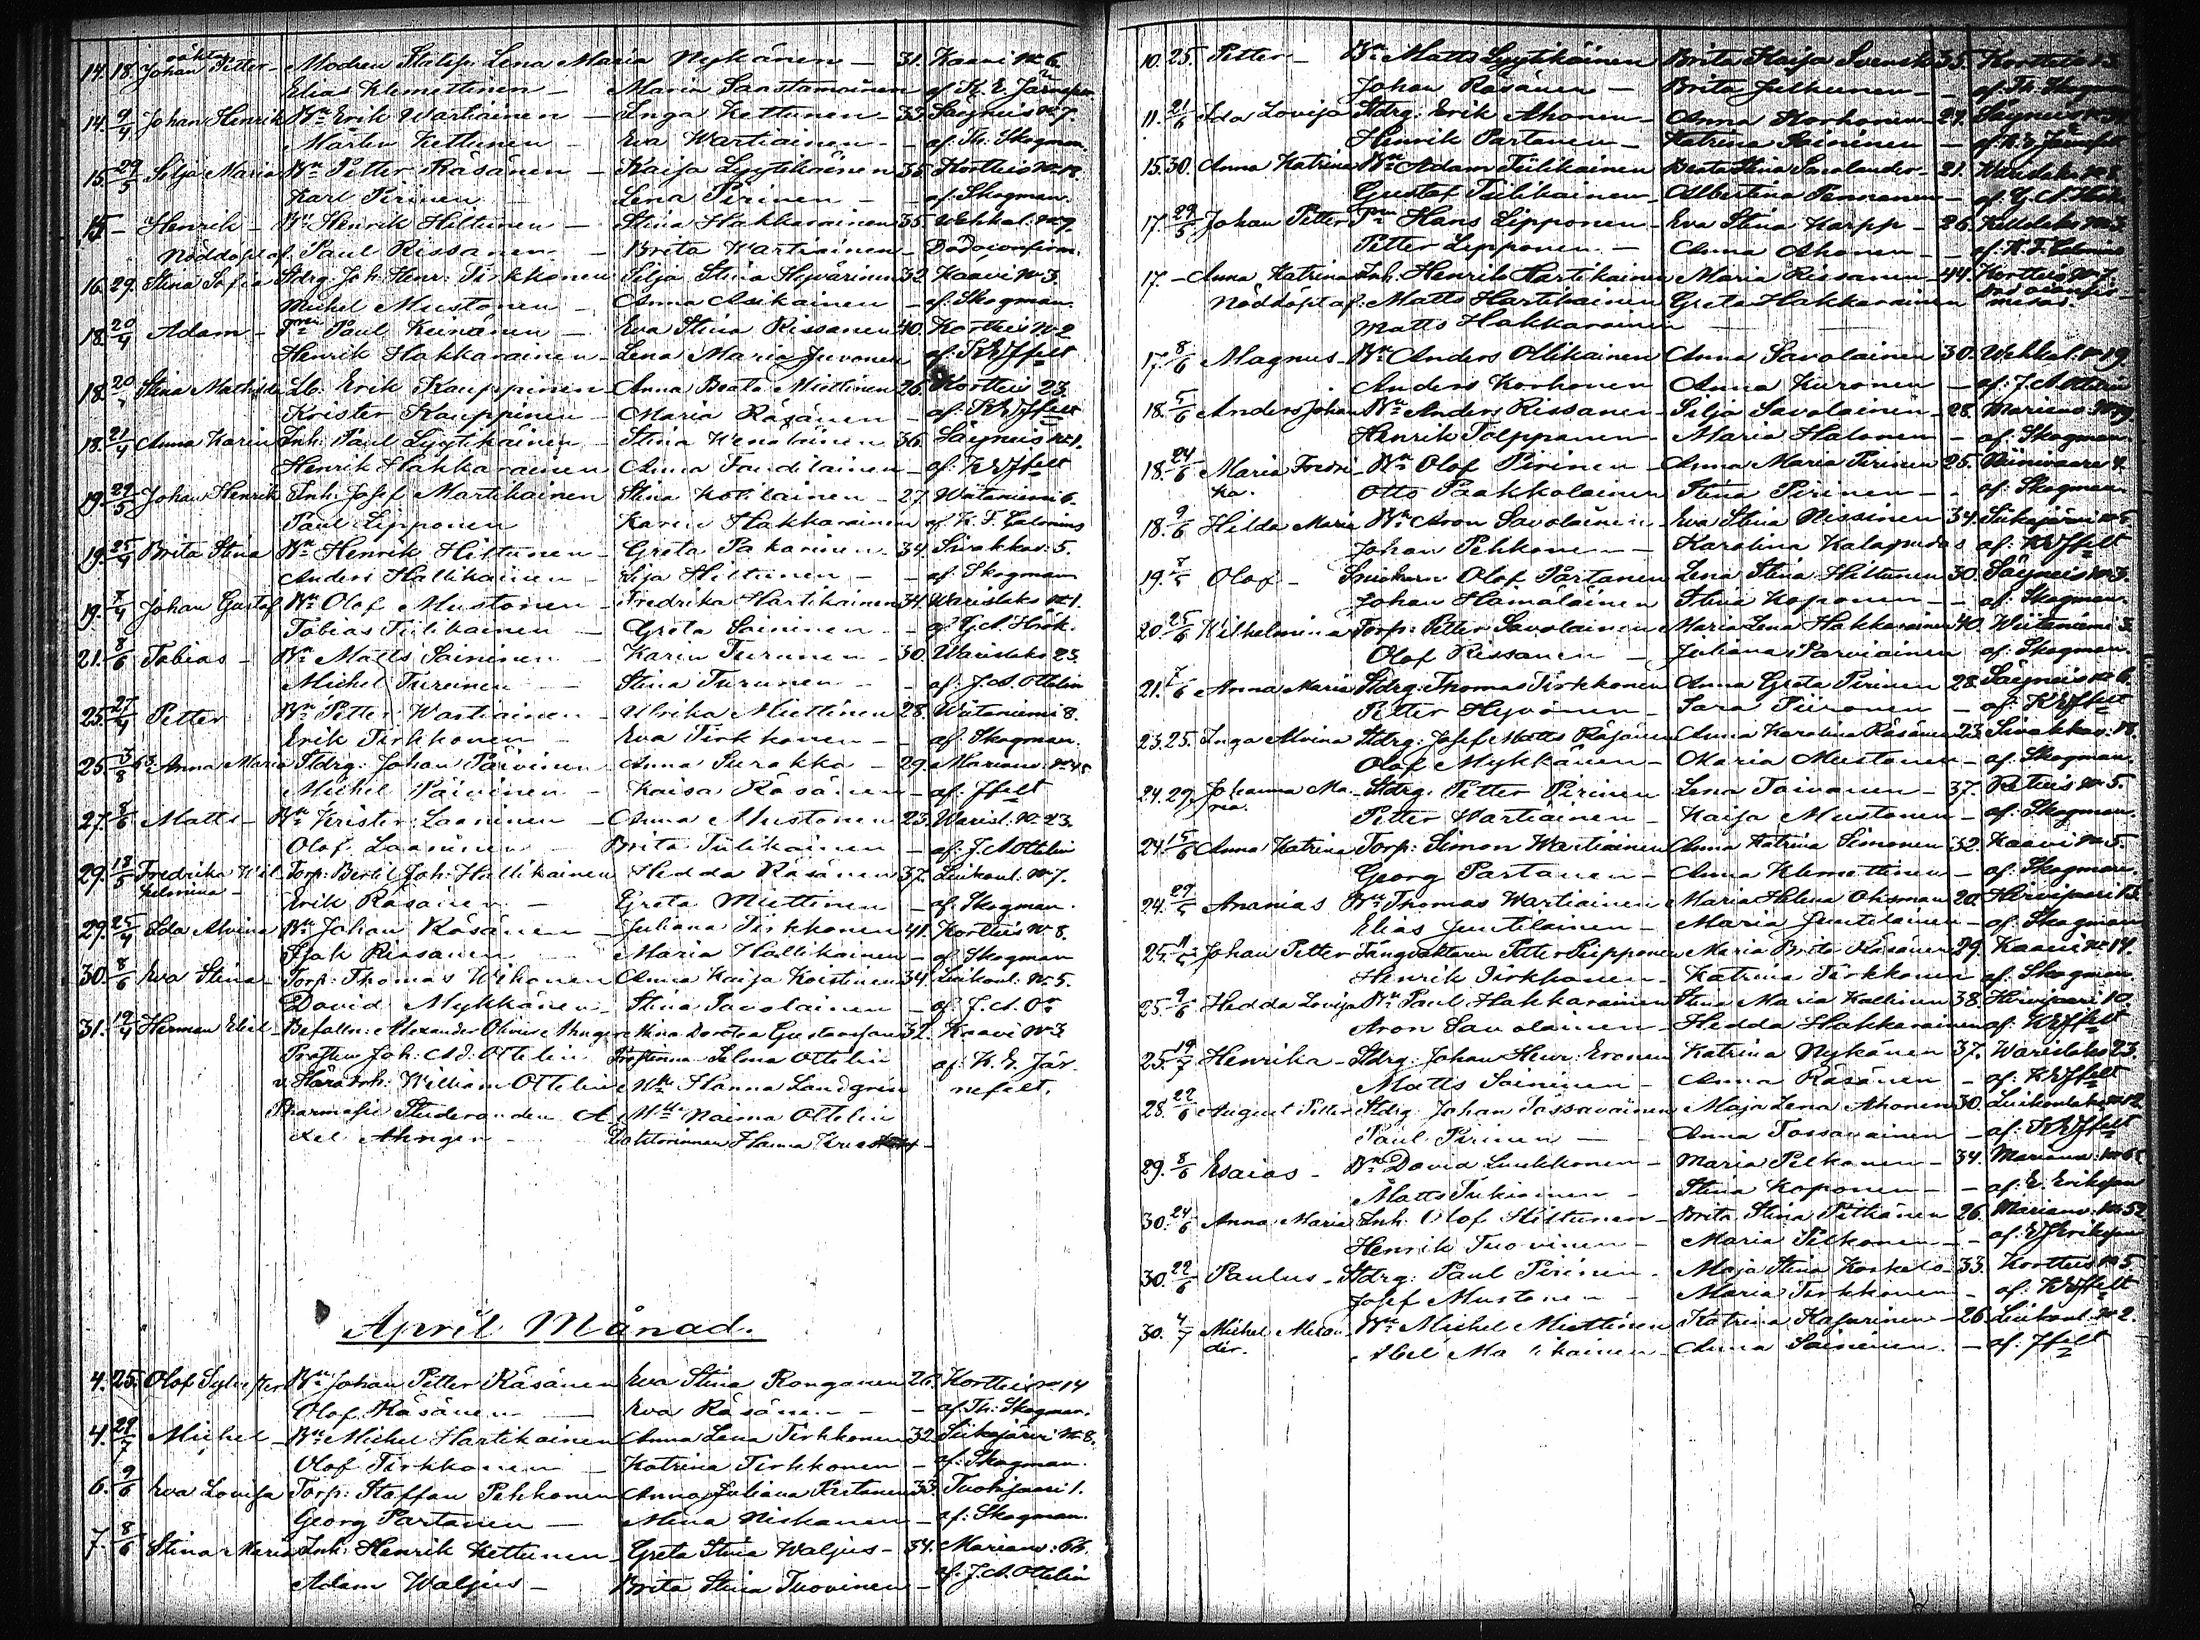 14. 18. Johan Petter - Modren Statp. Lena Maria Nykänen - 31. Kaavi No 6.
Elias Klemettinen - Maria Saastamoinen af K. E. Järnefelt
14. 9/4 Johan Henrik Bn Erik Wartiainen - Inga Kettunen - 33. Säyneis No 7.
Mårten Kettunen - Eva Wartiainen - af Th. Skogman.
15 29/5 Silja Maria Bn Petter Räsänen - Kaija Lyytikäinen 35 Kortteis No 18.
Karl Pirinen - Lena Pirinen - af Skogman.
15 - Henrik - Bn Henrik Hiltunen - Stina Hakkarainen 35. Wehkal. No 9.
Nöddöpt af Paul Rissanen - Brita Wartiainen -
16. 29. Stina Sofia Stdrg Joh. Henr. Tirkkonen Silja Stina Hyvärinen 32. Kaavi No 3.
Michel Mustonen - Anna Asikainen - af Skogman.
18. 20/4 Adam - Paul Keinänen - Eva Stina Rissanen 40. Kortteis No 2
Henrik Hakkarainen - Lena Maria Juvonen af: KEJffelt
18. 20 Stina Mathilda Lb. Erik Kauppinen - Anna Beata Miettinen 26. Kortteis 23.
Krister Kauppinen - Maria Räsänen - af: KEJffelt
18. 21/4 Anna Karin Inh. Paul Lyytikäinen - Stina Wenäläinen 36. Säyneis No 1.
Henrik Hakkarainen Anna Taudilainen - af: KEJffelt
19. 29/5 Johan Henrik Inh. Josef Martikainen Stina Kotilainen - 27. Wiitaniemi 6.
Paul Lipponen Karin Hakkarainen af K. F. Calonius
19. 25/4 Brita Stina Bn Henrik Hiltunen - Greta Pakarinen - 34. Sivakkav. 5.
Anders Hallikainen - Silja Hiltunen - af Skogman
19. 7/4 Johan Gustaf Bn Olof Mustonen - Fredrika Hartikainen 34. Warislaks No 1.
Tobias Tiilikainen - Greta Saininen -
21. 8/6 Tobias - Bn Matts Saininen - Karin Turunen - 30. Warislaks 23.
Michel Turunen - Stina Turunen - af: J. A. Ottelin
25. 27/4 Petter Bn Petter Wartiainen - Ulrika Miettinen 28. Wiitaniemi 8.
Erik Tirkkonen Eva Tirkkonen - af: Skogman.
25 3/8 63. Anna Maria Stdrg. Johan Päivinen Anna Surakka - 29. Marianv. No 45
Michel Päivinen - Kaisa Räsänen - af: Jffelt
27. 8/6 Matts - Bn Krister Laaninen - Anna Mustonen 23. Warisl. No 23.
Olof Laaninen - Brita Tiilikainen - af: J. A. Ottelin
29. 18/5 Fredrika Wilhelmina - Torp. Bertil Joh. Hallikainen Hedda Räsänen 37. Luikonl. No 7.
Erik Räsänen - Greta Miettinen - af: Skogman.
29. 25/4 Ida Alvina Bn Johan Räsänen - Juliana Tirkkonen 41. Kortteis No 8.
Isak Rissanen - Maria Hallikainen - af Skogman
30. 8/6 Eva Stina - Torp. Thomas Wihonen Anna Kaija Koistinen 34. Luikonl. No 5.
David Mykkänen - Stina Savolainen - af: J. A. On
31. 19/4 Herman Eliel - Befalln: Alexander Olivier Ahngren Mina Dorotea Gustavson 32. Kaavi No 3
Prosten Joh. Ad. Ottelin Prostinnan Selma Ottelin af: K. E. Jär-
v. Häradsh. William Ottelin Hanna Landgren nefelt.
Pharmasie Studeranden A- Naima Ottelin
xel Ahngren - Hanna
April Månad.
4. 25. Olof Sylvester Bn Johan Petter Räsänen Eva Stina Ronganen 26. Kortteis No 14
Olof Räsänen - Eva Räsänen - af Th. Skogman.
4. 29/7 Michel - Bn Michel Hartikainen Anna Lena Tirkkonen 32 Siikajärvi No 8.
Olof Tirkkonen - Katrina Tirkkonen - af: Skogman.
6. 9/6 Eva Lovisa Torp: Staffan Pehkonen Anna Juliana Partanen 33. Tuohijärvi 1.
Georg Partanen - Mina Niskanen - af: Skogman.
7. 8/6 Stina Maria Inh. Henrik Kettunen - Greta Stina Waljus - 34. Marianv: 66.
Adam Waljus - Brita Stina Tuovinen - af. J. A. Ottelin
10. 25. Petter - Bn Matts Lyytikäinen Brita Kaija Svensk 35. Kortteis 13.
Johan Räsänen - Brita Julkunen - af Th. Skogman
11. 21/6 Ida Lovisa Stdrg: Erik Ahonen - Anna Korhonen - 29. Säyneis
Henrik Partanen - Katrina Saininen - af K E Järnefelt
15. 30. Anna Katrina Bn Adam Tiilikainen Beata Stina Savolander - 21.
Gustaf Tiilikainen - Albertina Pennanen -
17. 29/5 Johan Petter Hans Lipponen - Eva Stina Karpp - 26.
Petter Lipponen - Anna Ahonen - af: K. F. Calonius
17. - Anna Katrina Inh. Henrik Hartikainen Maria Rissanen - 44. Kortteis No 7.
Nöddöpt af: Matts Hartikainen Greta Hakkarainen
Matts Hakkarainen
17. 8/6 Magnus - Bn Anders Ollikainen Anna Savolainen 30. Wehkal. No 19.
Anders Korhonen Anna Kuronen - af: J. A. Ottelin
18. 5/6 Anders Johan Bn Anders Rissanen - Silja Savolainen - 28. Marianv.
Henrik Tolppanen - Maria Halonen - af: Skogman
18. 24/6 Maria Fredri- ka. Bn Olof Pirinen - Anna Maria Pirinen 25. Niinivaara 4.
Otto Paakkolainen Stina Pirinen - af: Skogman.
18. 9/6 Hilda Maria Bn Aron Savolainen - Eva Stina Nissinen 34. Siikajärvi No 5.
Johan Pehkonen - Karolina Kalapudas af: KEJffelt
19. Olof - Snickare Olof Partanen Lena Stina Hiltunen 30. Säyneis No 3.
Johan Hämäläinen Stina Koponen - af: Skogman.
20. 25/6 Wilhelmina Torp: Petter Savolainen Maria Lena Hakkarainen 40. Wiitaniemi 3.
Olof Rissanen - Juliana Parviainen af: Skogman.
21. Anna Maria Stdrg. Thomas Tirkkonen Anna Greta Pirinen 28. Säyneis No 6.
Petter Hyvönen - Sara Piironen - af: KEJffelt
23. 25. Inga Alvina Stdrg. Josef Matts Räsänen Anna Karolina Räsänen 23. Sivakkav. 18.
Olof Mykkänen - Maria Mustonen - af: Skogman
24. 29. Johanna Ma- ria. Stdrg. Petter Pirinen Lena Toivanen - 37. No 5.
Petter Wartiainen - Kaija Mustonen - af: Skogman.
24. 15/6 Anna Katrina Torp. Simon Wartiainen Anna Katrina Simonen 32. Kaavi No 5.
Georg Partanen - Anna Klemettinen - af: Skogman.
24. Ananias Bn Thomas Wartiainen Maria Helena Ohsman 20. Hirvijärvi 13.
Elias Juutilainen - Maria Juutilainen - af: Skogman
25. Johan Petter Fångvaktaren Petter Pipponen Maria Brita Räsänen 29. Kaavi No 14.
Henrik Tirkkonen - Katrina Tirkkonen af: Skogman
25. 9/6 Hedda Lovisa Bn Paul Hakkarainen Stina Maria Kalkinen 38. Hirvijärvi 10.
Aron Savolainen - Hedda Hakkarainen af: KEJffelt
25. 19/7 Henrika - Stdrg: Johan Henr: Eronen Katrina Nykänen 37. Warislaks 23.
Matts Saininen - Anna Räsänen - af: KEJffelt
28. 22/6 August Petter Stdrg. Johan Tossavainen Maja Lena Ahonen 30. Luikonlaks No 12.
Paul Pirinen - Anna Tossavainen - af: KEJffelt
29. 8/6 Esaias - Bn David Luukkonen - Maria Pelkonen - 34. Marianv.
Matts Tukiainen - Stina Koponen - af: E. Erikson
30. 24/6 Anna Maria Inh. Olof Hiltunen - Brita Stina Pitkänen 26. Marianv. No 52
Henrik Tuovinen - Maria Pelkonen -
30. 22/6 Paulus - Stdrg: Paul Pirinen - Maja Stina Koskelo - 33. Kortteis No 5
Josef Mustonen - Maria Tirkkonen - af: KEJffelt
30. 4/7 Michel Alexan- der. Bn Michel Miettinen Katrina Kasurinen - 26 Luikonl. No 2.
Abel Anna Saininen. - af: Jffelt